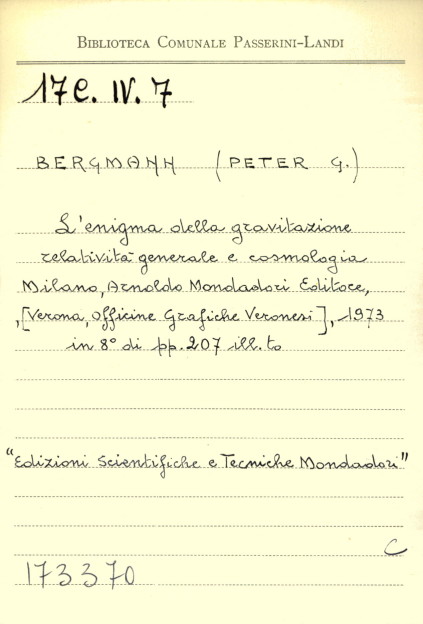 BIBLIOTECA COMUNALE PASSERINI-LANDI
17 C. IV. 7
BERGMANN (PETER G.)
L'enigma della gravitazione
relatività generale e cosmologia
Milano, Arnoldo Mondadori Editore,
,[Verona, Officine Grafiche Veronesi], 1973
in 8° di pp. 207 ill.to
"Edizioni Scientifiche e Tecniche Mondadori"
C
173370